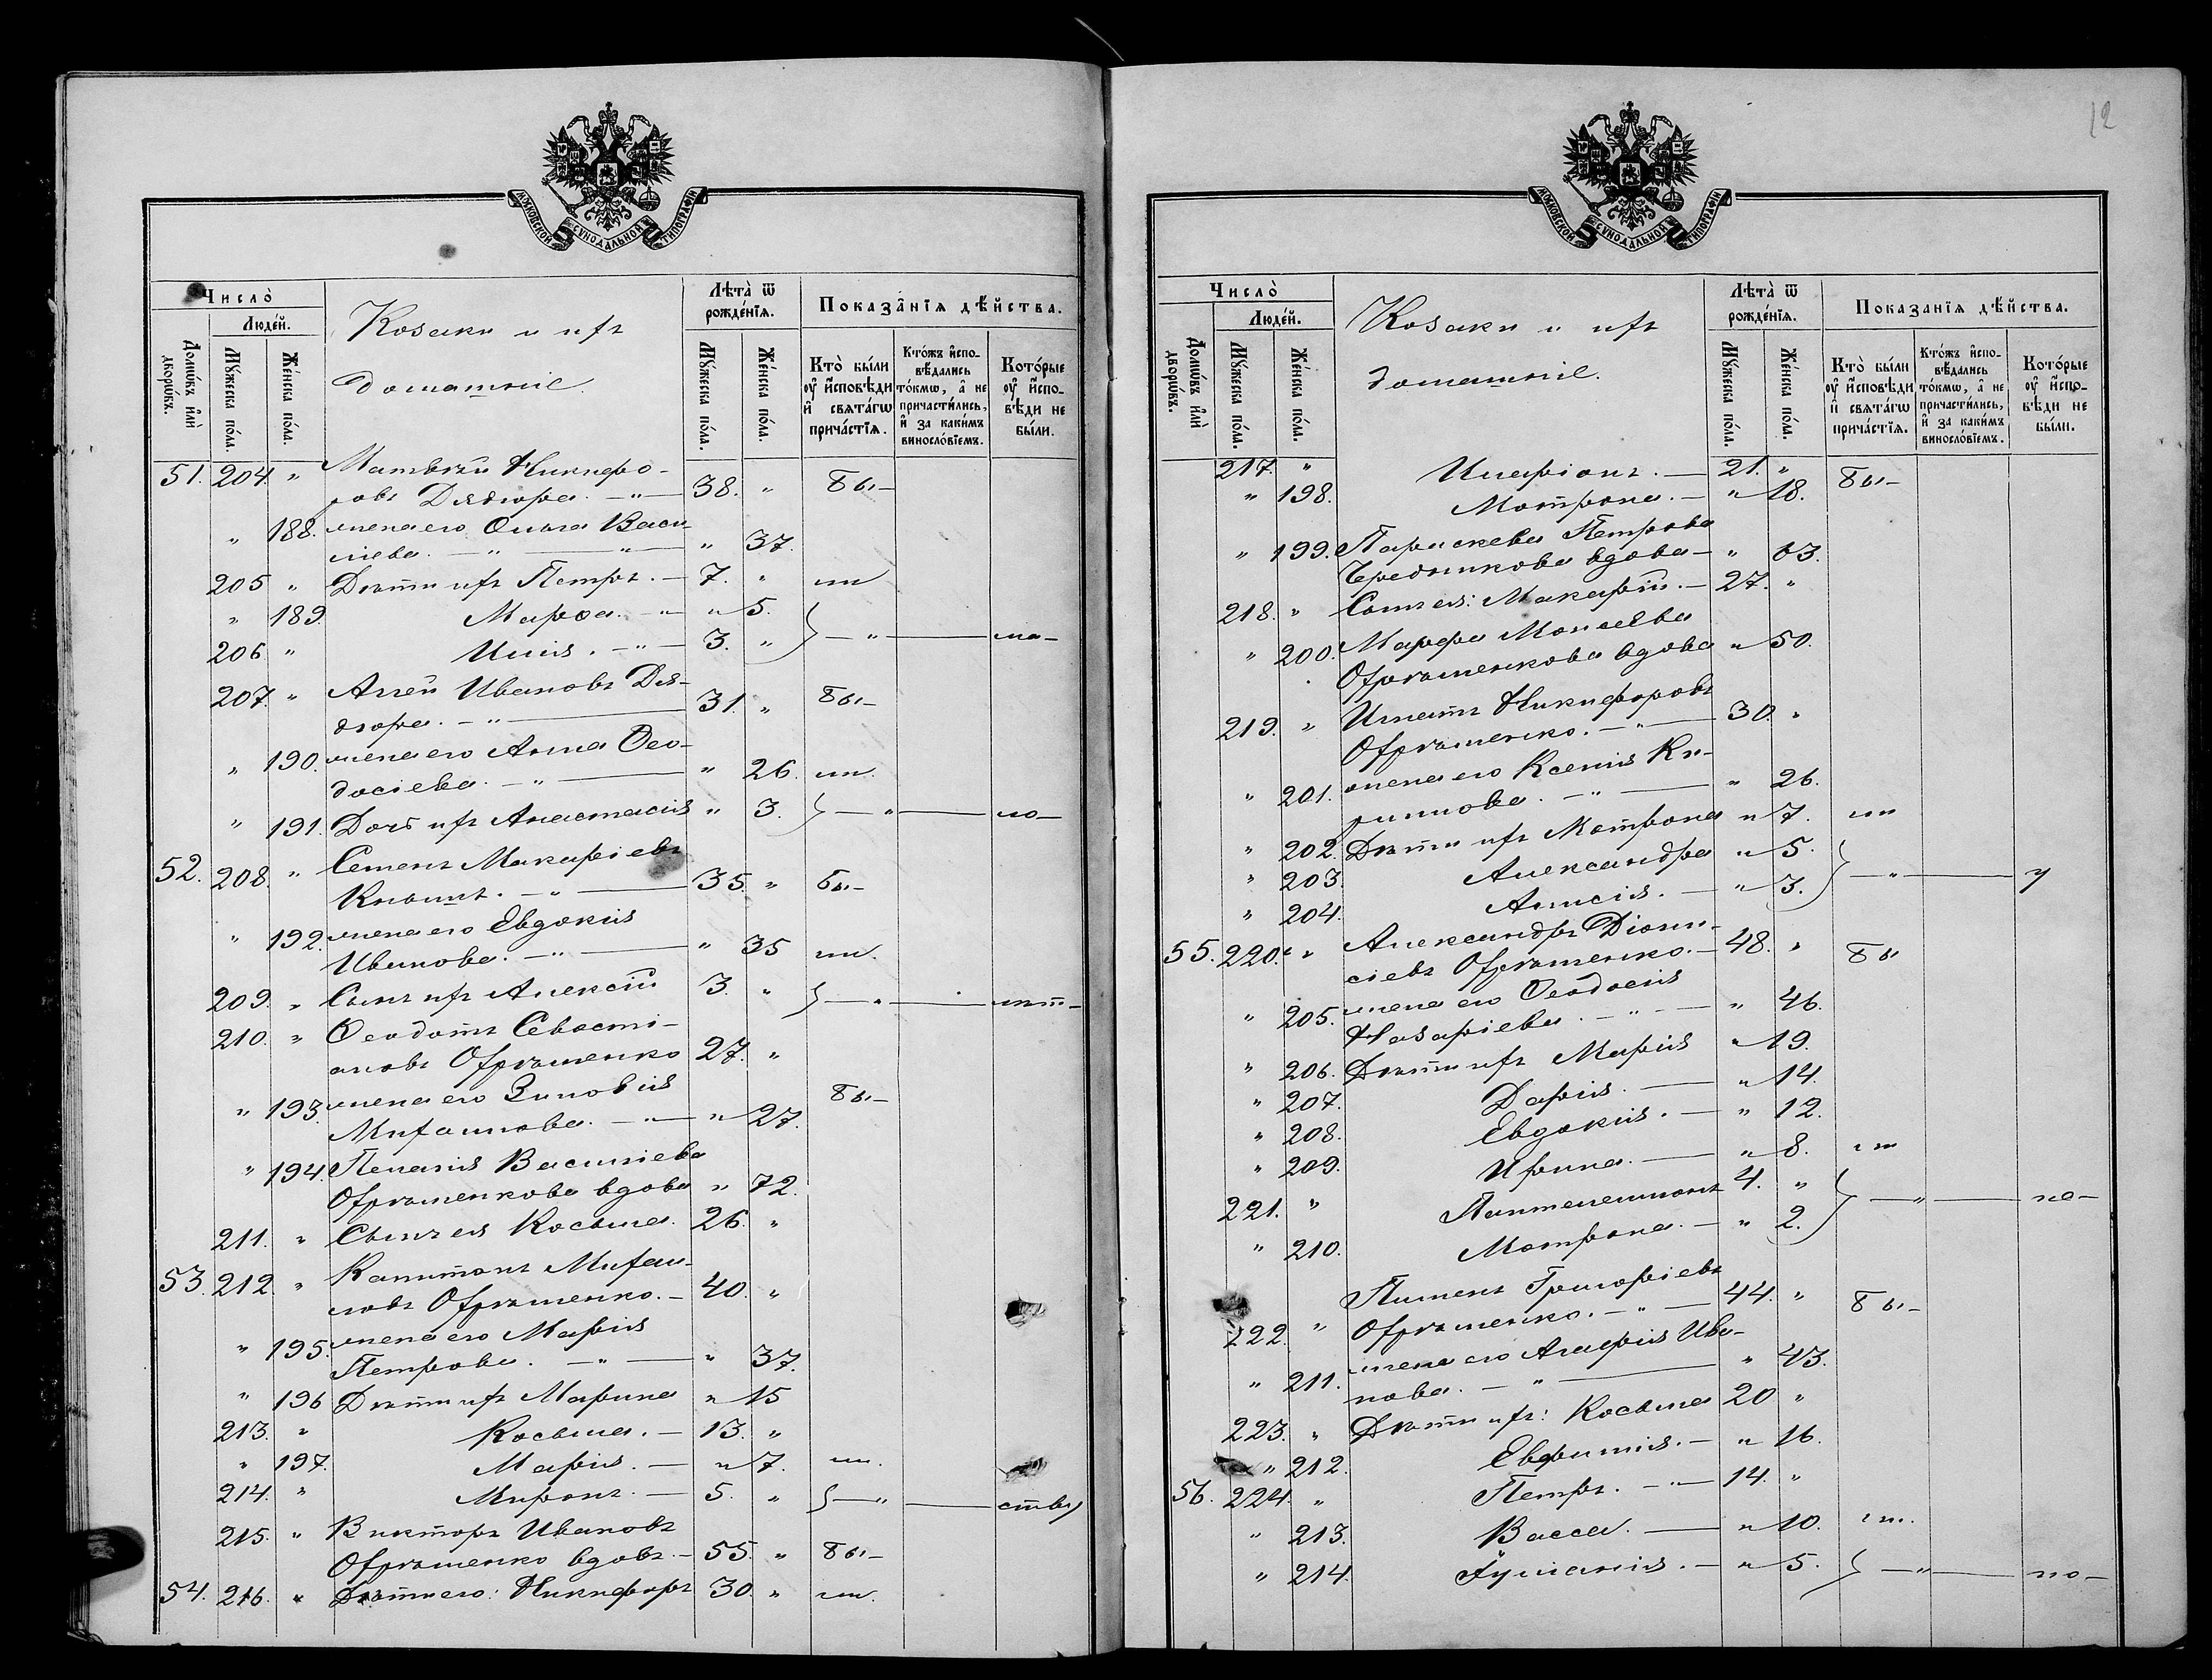 МОСКОВСКОЙ СѴНОДАЛЬНОЙ ТИПОГРАФІИ
Число̀
Людéй.
Домѡ́въ и҆лѝ дворѡ́въ.
Мꙋ́жеска по́ла.
Же́нска по́ла.
Козаки и ихъ
домашніе.
Лѣта̀ ѿ рожде́нїѧ.
Мꙋ́жеска по́ла.
Же́нска по́ла.
Показа̑нїѧ дѣ́йства.
Кто̀ бы́ли оу҆ и҆сповѣ́ди и҆ свѧта́гѡ прича́стїѧ.
Кто́жъ и҆спо-
вѣ́дались
то́кмѡ, а҆ не
причасти́лись,
и҆ за каки́мъ
винослόвїемъ.
Кото́рые
оу҆ и҆спо-
вѣ́ди не
бы́ли.
51. 204. " Матвѣй Никифо-
ровъ Дядюра. — " — 38. " бы-
" 188. жена его Ольга Васи-
ліева. — " — " — " 37.
205 " Дѣти ихъ Петръ. — 7. " ли
" 189. Марѳа. — " " 5.
206 " Илія. — " — 3. " } — " — ма-
207. " Аггей Ивановъ Дя-
дюра. — " — 31. " бы-
" 190. жена его Анна Ѳео-
досіева. — " — " 26. ли.
" 191. Дочь ихъ Анастасія " 3. } — " — ло-
52. 208. " Семенъ Макаріевъ
Кнышъ. — " — 35. " бы-
" 192. жена его Евдокія
Иванова. — " — " 35 ли.
209. " Сынъ ихъ Алексій 3. " } — " — лѣт-
210. " Ѳеодотъ Севасті-
ановъ Охрѣменко 27. "
" 193. жена его Зиновія
Михаилова. — " — " 27. бы-
" 194. Пелагія Василіева
Охрѣменкова вдова " 72.
211. " Сынъ ея Косьма. 26. "
53. 212. " Капитонъ Михаи-
ловъ Охрѣменко. — 40. "
" 195. жена его Марія
Петрова. — " — " 37.
" 196 Дѣти ихъ Марина " 15
213. " Косьма. — 13. "
" 197. Марія. — " 7. ли.
214. " Миронъ. — 5. " } — " — ству
215. " Викторъ Ивановъ
Охрѣменко вдовъ. — 55. " бы-
54. 216. " Дѣти его: Никифоръ 30. " ли.
12
МОСКОВСКОЙ СѴНОДАЛЬНОЙ ТИПОГРАФІИ
Число̀
Людéй.
Домѡ́въ и҆лѝ дворѡ́въ.
Мꙋ́жеска по́ла.
Же́нска по́ла.
Козаки и ихъ
домашніе.
Лѣта̀ ѿ рожде́нїѧ.
Мꙋ́жеска по́ла.
Же́нска по́ла.
Показа̑нїѧ дѣ́йства.
Кто̀ бы́ли оу҆ и҆сповѣ́ди и҆ свѧта́гѡ прича́стїѧ.
Кто́жъ и҆спо-
вѣ́дались
то́кмѡ, а҆ не
причасти́лись,
и҆ за каки́мъ
винослόвїемъ.
Кото́рые
оу҆ и҆спо-
вѣ́ди не
бы́ли.
217. " Иларіонъ. — 21. "
" 198. Мотрона. — " 18. бы-
" 199. Параскева Петрова
Чередникова вдова — " 63.
218. " Сынъ ея: Макарій. — 27. "
" 200. Марфа Моисеева
Охрѣменкова вдова " 50.
219. " Игнатъ Никифоровъ
Охрѣменко. — " — 30. "
" 201. жена его Ксенія Ки-
риллова. — " — " 26.
" 202. Дѣти ихъ Мотрона " 7. ли
" 203. Александра " 5.
" 204. Анисія. — " 3. } — " — у
55. 220. " Александръ Діони-
сіевъ Охрѣменко. — 48. " бы
" 205. жена его Ѳеодосія
Назаріева. — " — " 46.
" 206. Дѣти ихъ Марія " 19.
" 207. Дарія. — " 14.
" 208. Евдокія. — " 12.
" 209. Ирина. — " 8. ли
221. " Пантелеимонъ 4. "
" 210. Мотрона. — " 2. } — " — по-
222. " Пименъ Григоріевъ
Охрѣменко. — " — 44. " бы-
" 211. жена его Агафія Ива-
нова. — " — " 43.
223. " Дѣти ихъ: Косьма 20 "
" 212. Евфимія. — " 16.
56. 224. " Петръ. — " — 14. "
" 213. Васса. — " 10. ли.
" 214. Іуліанія. — " 5. } — " — по-